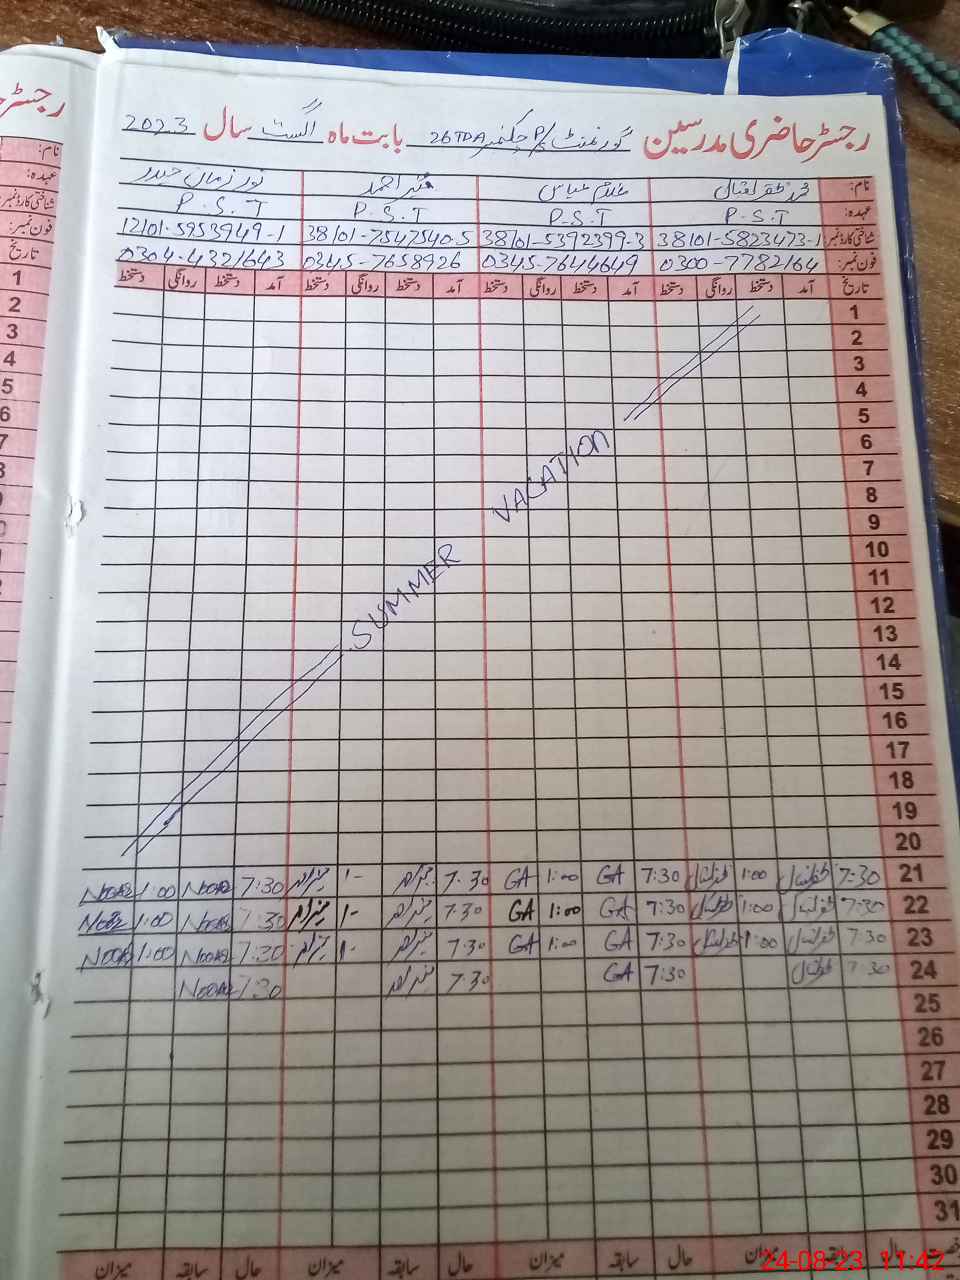 رجسٹر حاضری مدرسین گورنمنٹ P/S چکنمبر 26TDA بابت ماہ اگست سال 2023
نام: محمد ظفر اقبال غلام عباس منیر احمد نور زمان حیدر
عہدہ: P.S.T P.S.T P.S.T P.S.T
شناختی کارڈ نمبر: 38101-5823473-1 38101-5392399-3 38101-7547540-5 12101-5953949-1
فون نمبر: 0300-7782164 0345-7644649 0345-7658926 0304-4321643
تاریخ آمد دستخط روانگی دستخط آمد دستخط روانگی دستخط آمد دستخط روانگی دستخط آمد دستخط روانگی دستخط
1
2
3
4
5
6
7
8
9
10
11
12
13
14
15
16
17
18
19
20
SUMMER VACATION
21 7:30 ظفر اقبال 1:00 ظفر اقبال 7:30 GA 1:00 GA 7:30 منیر احمد 1- منیر احمد 7:30 NOOR 1:00 NOOR
22 7:30 ظفر اقبال 1:00 ظفر اقبال 7:30 GA 1:00 GA 7:30 منیر احمد 1- منیر احمد 7:30 NOOR 1:00 NOOR
23 7:30 ظفر اقبال 1:00 ظفر اقبال 7:30 GA 1:00 GA 7:30 منیر احمد 1- منیر احمد 7:30 NOOR 1:00 NOOR
24 7:30 ظفر اقبال 7:30 GA 7:30 منیر احمد 7:30 NOOR
25
26
27
28
29
30
31
حال سابقہ میزان حال سابقہ میزان حال سابقہ میزان حال سابقہ میزان
24-08-23 11:42
رجسٹر
نام:
عہدہ:
شناختی کارڈ نمبر:
فون نمبر:
تاریخ
1
2
3
4
5
6
7
8